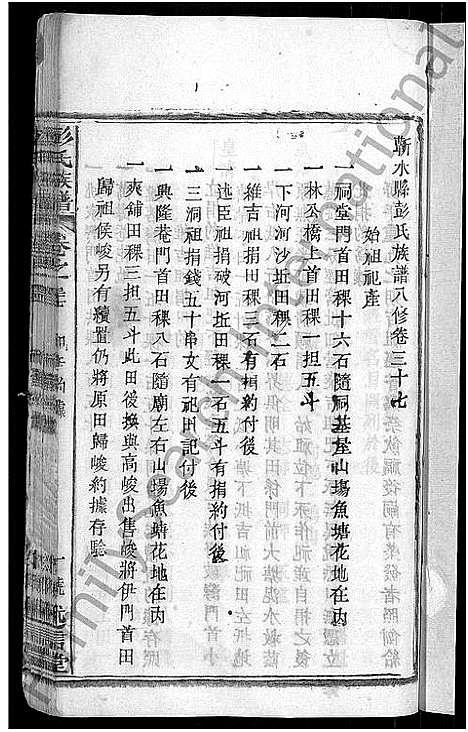 蘄水縣彭氏族譜八修卷三十七
始祖祀產
一祠堂門首田稞十六石隨祠基屋山塲魚塘花地在內
一林公橋上首田稞一担五斗
一下河河沙坵田稞二石
一維吉祖捐田稞三石有捐約付後
一述臣祖捐破河坵田稞一石五斗有捐約付後
一三洞祖捐錢五十串文有祀田記付後
一興隆菴門首田稞八石隨廟左右山塲魚塘花地在內
一爽舖田稞三担五斗此田後換與高峻出售峻將伊門首田
歸祖俟峻另有續置仍將原田歸峻約據存驗
彭氏族譜
卷之
FamilySearch International